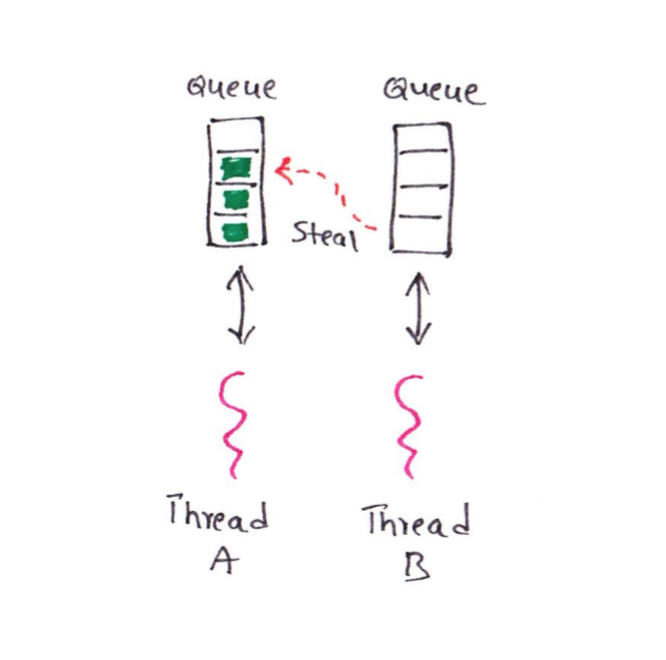 Queue
Queue
Steal
Thread
A
Thread
B